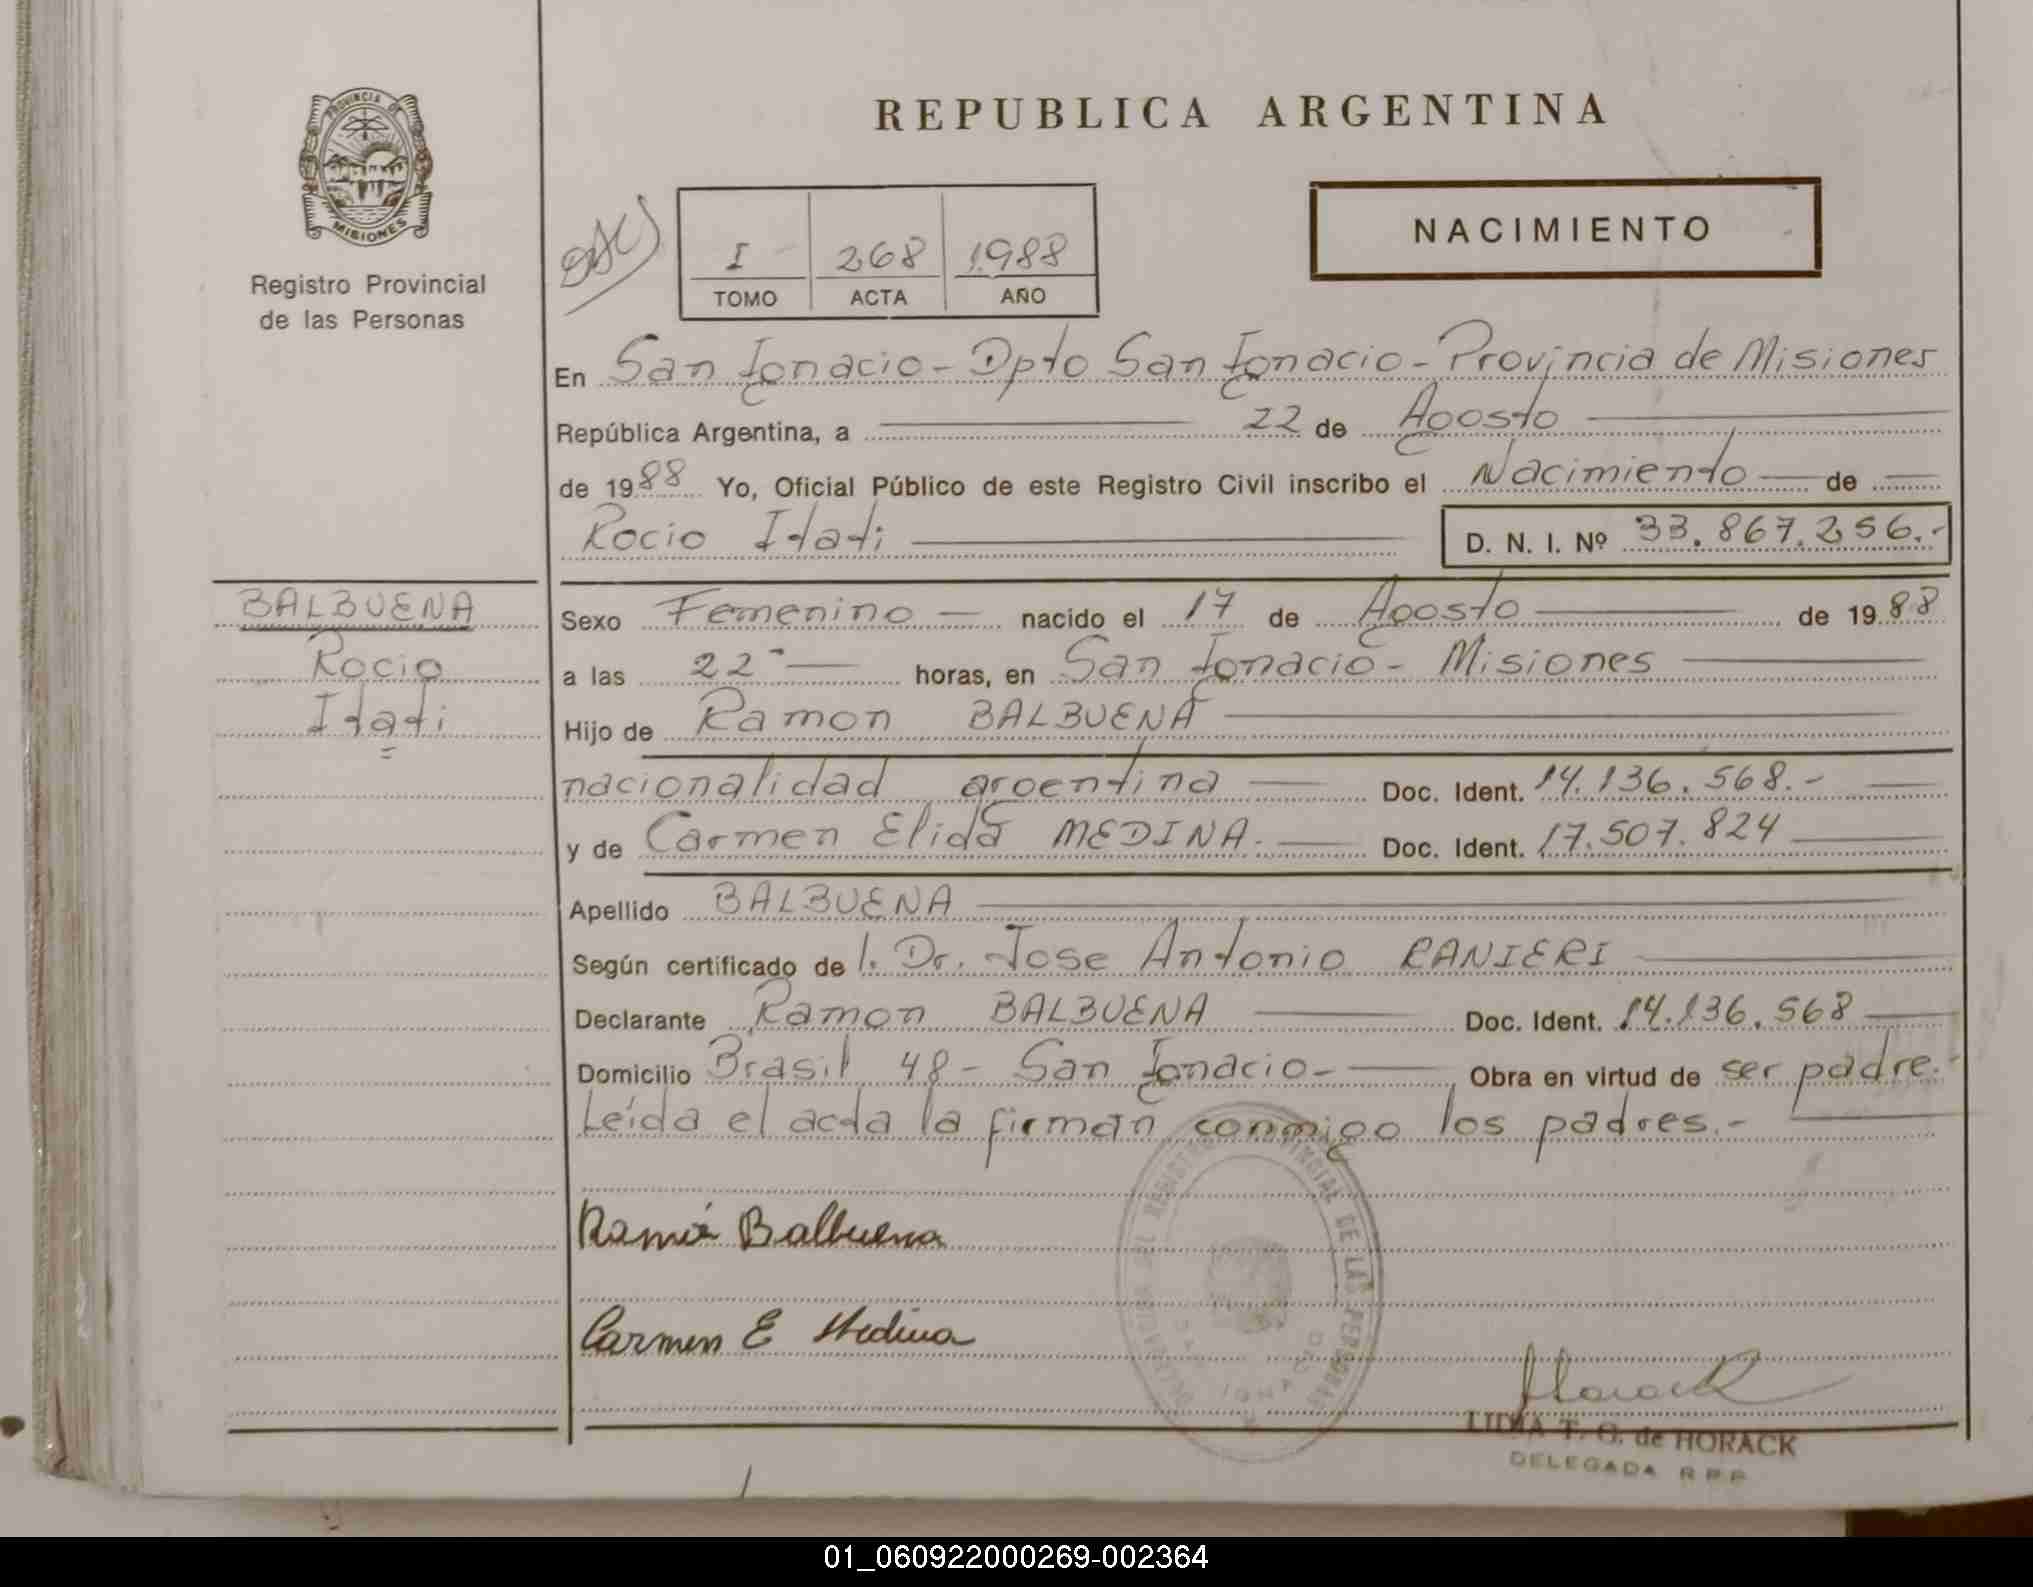 PROVINCIA DE
MISIONES
Registro Provincial
de las Personas
REPUBLICA ARGENTINA
NACIMIENTO
I 268 1988
TOMO ACTA AÑO
En San Ignacio - Dpto San Ignacio - Provincia de Misiones
República Argentina, a 22 de Agosto
de 1988 Yo, Oficial Público de este Registro Civil inscribo el Nacimiento de
Rocio Itati D. N. I. Nº 33.867.256.-
BALBUENA
Rocio
Itati
Sexo Femenino nacido el 17 de Agosto de 1988
a las 22 horas, en San Ignacio - Misiones
Hijo de Ramon BALBUENA
nacionalidad argentina Doc. Ident. 14.136.568.-
y de Carmen Elida MEDINA.- Doc. Ident. 17.507.824
Apellido BALBUENA
Según certificado de l. Dr. Jose Antonio RANIERI
Declarante Ramon BALBUENA Doc. Ident. 14.136.568
Domicilio Brasil 48 - San Ignacio - Obra en virtud de ser padre.-
Leída el acta la firman conmigo los padres.-
Ramón Balbuena
Carmen E Medina
Horack
LIDIA T. G. de HORACK
DELEGADA R P P
01_060922000269-002364